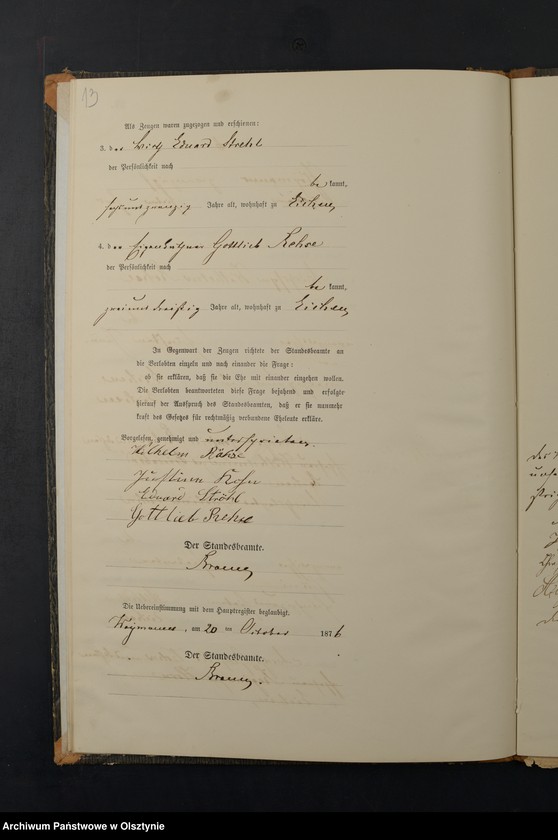 13
Als Zeugen waren zugezogen und erschienen:
3. der Wirth Eduard Stroehl
der Persönlichkeit nach
be kannt,
sechsundzwanzig Jahre alt, wohnhaft zu Eichen,
4. der Eigenkäthner Gottlieb Rehse
der Persönlichkeit nach
be kannt,
zweiunddreißig Jahre alt, wohnhaft zu Eichen,
In Gegenwart der Zeugen richtete der Standesbeamte an
die Verlobten einzeln und nach einander die Frage:
ob sie erklären, daß sie die Ehe mit einander eingehen wollen.
Die Verlobten beantworteten diese Frage bejahend und erfolgte
hierauf der Ausspruch des Standesbeamten, daß er sie nunmehr
kraft des Gesetzes für rechtmäßig verbundene Eheleute erkläre.
Vorgelesen, genehmigt und unterschrieben.
Wilhelm
Eduard Ströhl
Gottlieb Rehse
Der Standesbeamte.
Die Uebereinstimmung mit dem Hauptregister beglaubigt.
am 20 ten October 1876
Der Standesbeamte.
Archiwum Państwowe w Olsztynie